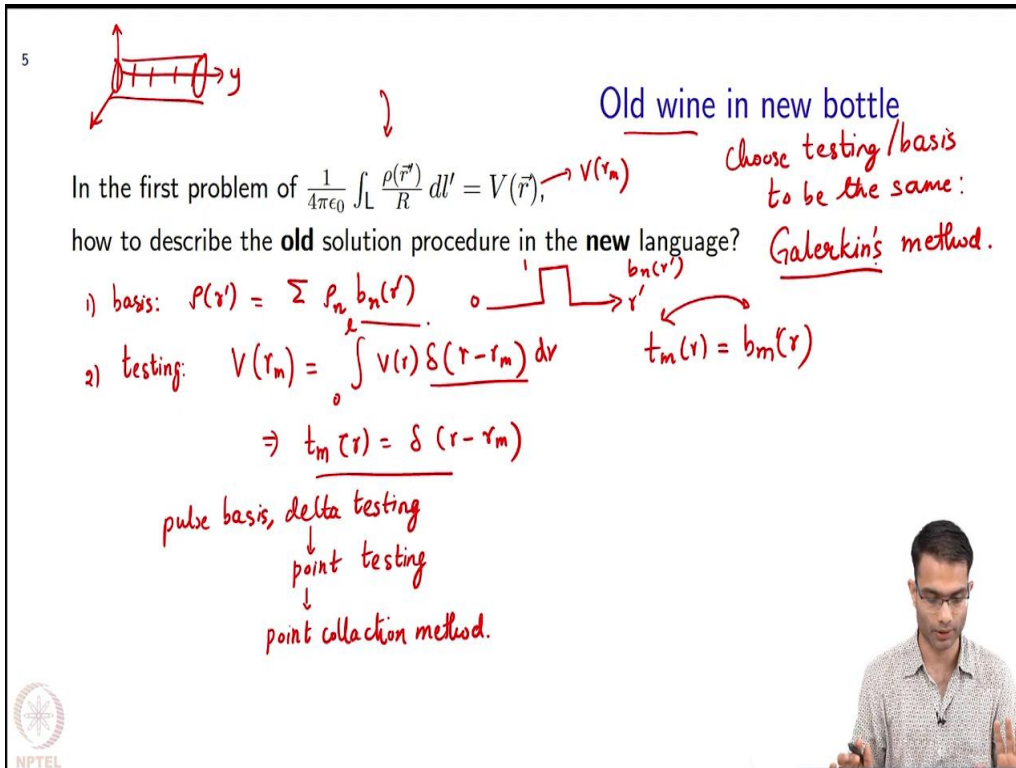 5
y
Old wine in new bottle
choose testing/basis
to be the same:
Galerkin's method.
In the first problem of \frac{1}{4πϵ_0} ∫_L \frac{ρ(\vec{r}')}{R} dl' = V(\vec{r}), → V(r_m)
how to describe the old solution procedure in the new language?
1) basis: ρ(r') = Σ ρ_n b_n(r')
0 1 b_n(r') r'
2) testing: V(r_m) = ∫_0^l V(r) δ(r-r_m) dr
t_m(r) = b_m(r)
⇒ t_m(r) = δ(r-r_m)
pulse basis, delta testing
↓
point testing
↓
point collaction method.
NPTEL